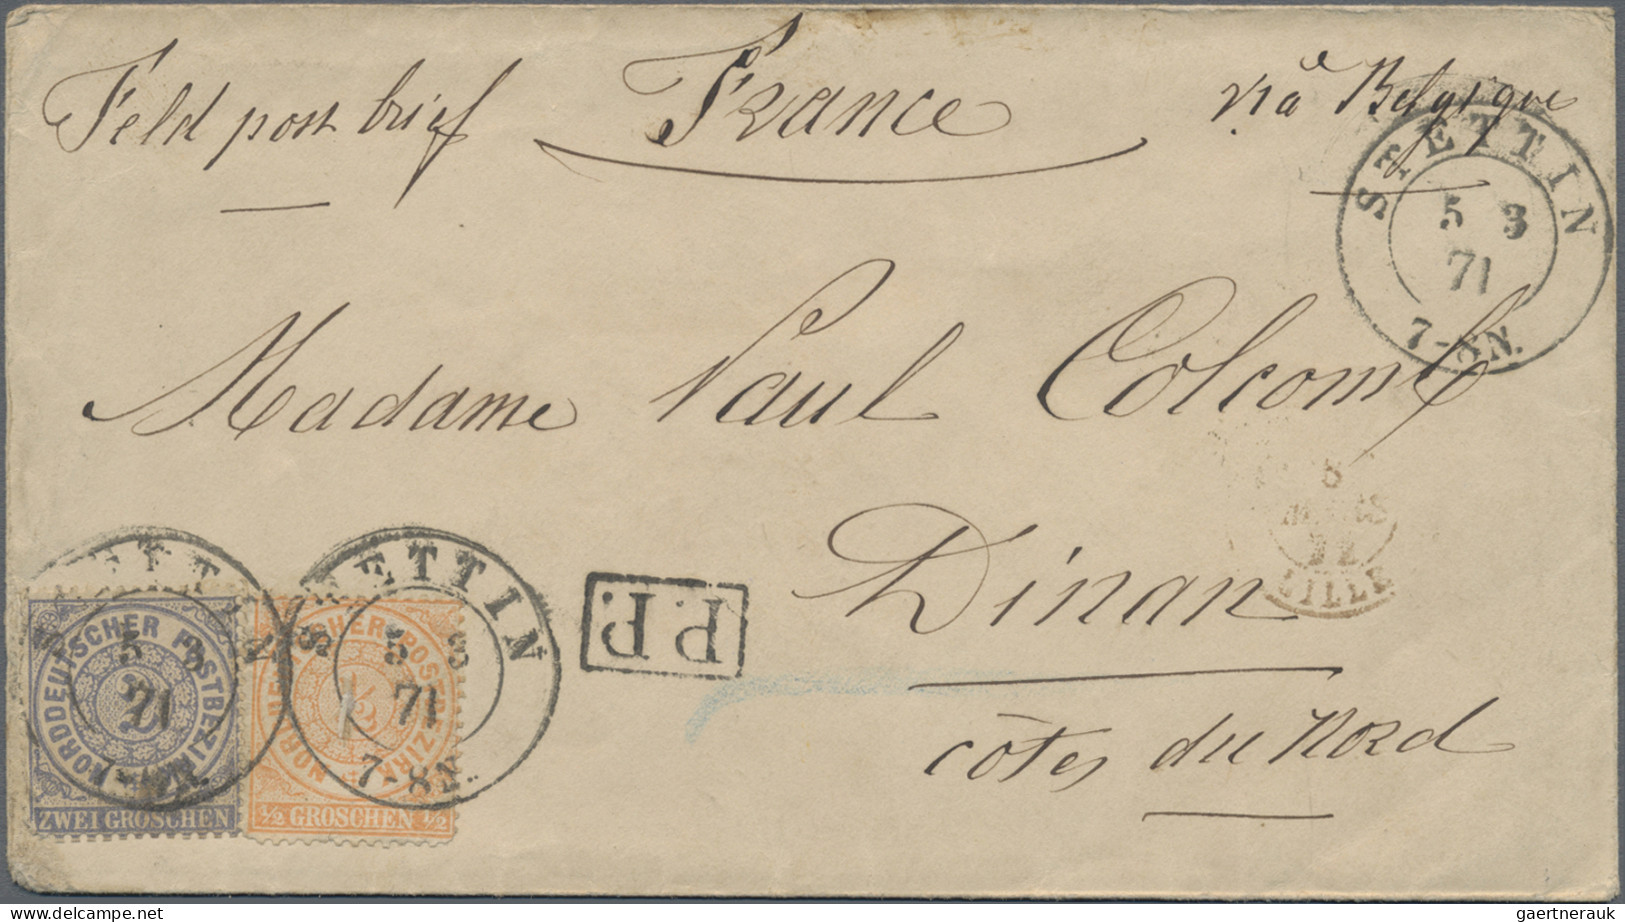 Feld post brief France via Belgique
STETTIN
5 3
71
7-8N.
Madame Paul Colcomb
8
MARS
71
LILLE
Dinan
côtes du Nord
P.P.
STETTIN
5 3
71
7-8N.
NORDDEUTSCHER POSTBEZIRK
2
ZWEI GROSCHEN
STETTIN
5 3
71
7-8N.
NORDDEUTSCHER POSTBEZIRK
1/2
1/2 GROSCHEN 1/2
delcampe.net
gaertnerauk